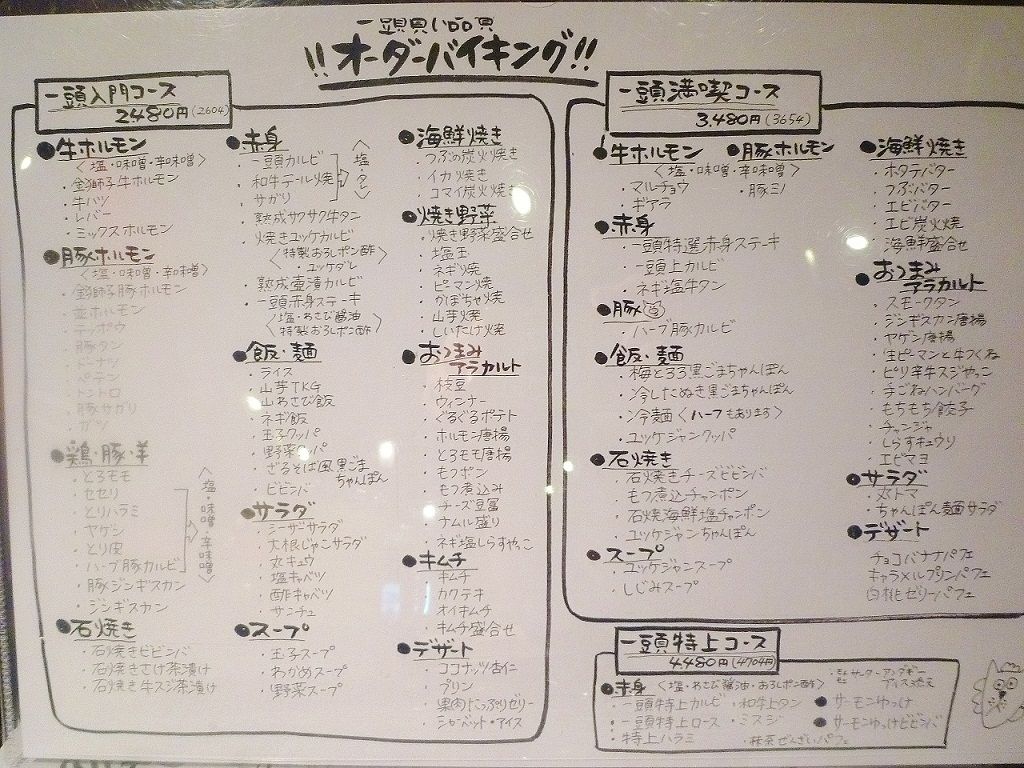 一頭買い品質
!!オーダーバイキング!!
一頭入門コース
2480円(2604)
●牛ホルモン
〈塩・味噌・辛味噌〉
・金獅子牛ホルモン
・牛ハツ
・レバー
・ミックスホルモン
●豚ホルモン
〈塩・味噌・辛味噌〉
・金獅子豚ホルモン
・並ホルモン
・テッポウ
・豚タン
・ドーナツ
・ペテン
・トントロ
・豚サガリ
・ガツ
●鶏・豚・羊
・とろモモ
・セセリ
・とりハラミ
・ヤゲン
・とり皮
・ハーブ豚カルビ
〈塩・味噌・辛味噌〉
・豚ジンギスカン
・ジンギスカン
●石焼き
・石焼きビビンバ
・石焼きさけ茶漬け
・石焼き牛スジ茶漬け
●赤身
・一頭カルビ
・和牛テール焼
・サガリ
〈塩・タレ〉
・熟成サクサク牛タン
・焼きユッケカルビ
〈特製おろしポン酢
・ユッケダレ〉
・熟成壷漬カルビ
・一頭赤身ステーキ
〈塩・わさび醤油
特製おろしポン酢〉
●飯・麺
・ライス
・山芋TKG
・山わさび飯
・ネギ飯
・玉子クッパ
・野菜クッパ
・ざるそば風黒ごま
ちゃんぽん
・ビビンバ
●サラダ
・シーザーサラダ
・大根じゃこサラダ
・丸キュウ
・塩キャベツ
・酢キャベツ
・サンチュ
●スープ
・玉子スープ
・わかめスープ
・野菜スープ
●海鮮焼き
・つぶの炭火焼き
・イカ焼き
・コマイ炭火焼き
●焼き野菜
・焼き野菜盛合せ
・塩玉
・ネギリ焼
・ピーマン焼
・かぼちゃ焼
・山芋焼
・しいたけ焼
●おつまみ
アラカルト
・枝豆
・ウィンナー
・ぐるぐるポテト
・ホルモン唐揚
・とろモモ唐揚
・もつポン
・もつ煮込み
・チーズ豆富
・ナムル盛り
・ネギ塩しらすやっこ
●キムチ
・キムチ
・カクテキ
・オイキムチ
・キムチ盛合せ
●デザート
・ココナッツ杏仁
・プリン
・果肉たっぷりゼリー
・シャーベット・アイス
一頭満喫コース
3,480円(3654)
●牛ホルモン ●豚ホルモン
〈塩・味噌・辛味噌〉
・マルチョウ ・豚ミノ
・ギアラ
●赤身
・一頭特選赤身ステーキ
・一頭上カルビ
・ネギ塩牛タン
●豚
・ハーブ豚カルビ
●飯・麺
・梅とろろ黒ごまちゃんぽん
・冷したぬき黒ごまちゃんぽん
・冷麺〈ハーフもあります〉
・ユッケジャンクッパ
●石焼き
・石焼きチーズビビンバ
・もつ煮込チャンポン
・石焼海鮮塩チャンポン
・ユッケジャンちゃんぽん
●スープ
・ユッケジャンスープ
・しじみスープ
●海鮮焼き
・ホタテバター
・つぶバター
・エビバター
・エビ炭火焼
・海鮮盛合せ
●おつまみ
アラカルト
・スモークタン
・ジンギスカン唐揚
・ヤゲン唐揚
・生ピーマンと牛つくね
・ピリ辛牛スジやっこ
・手ごねハンバーグ
・もちもち餃子
・チャンジャ
・しらすキュウリ
・エビマヨ
●サラダ
・丸トマ
・ちゃんぽん麺サラダ
●デザート
チョコバナナパフェ
キャラメルプリンパフェ
白桃ゼリーパフェ
一頭特上コース
4,480円(4704円)
●赤身〈塩・わさび醤油・おろしポン酢〉
・一頭特上カルビ ・和牛上タン ●サーモンゆっけ
・一頭特上ロース ・ミスジ ●サーモンゆっけビビンバ
・特上ハラミ ・抹茶ぜんざいパフェ